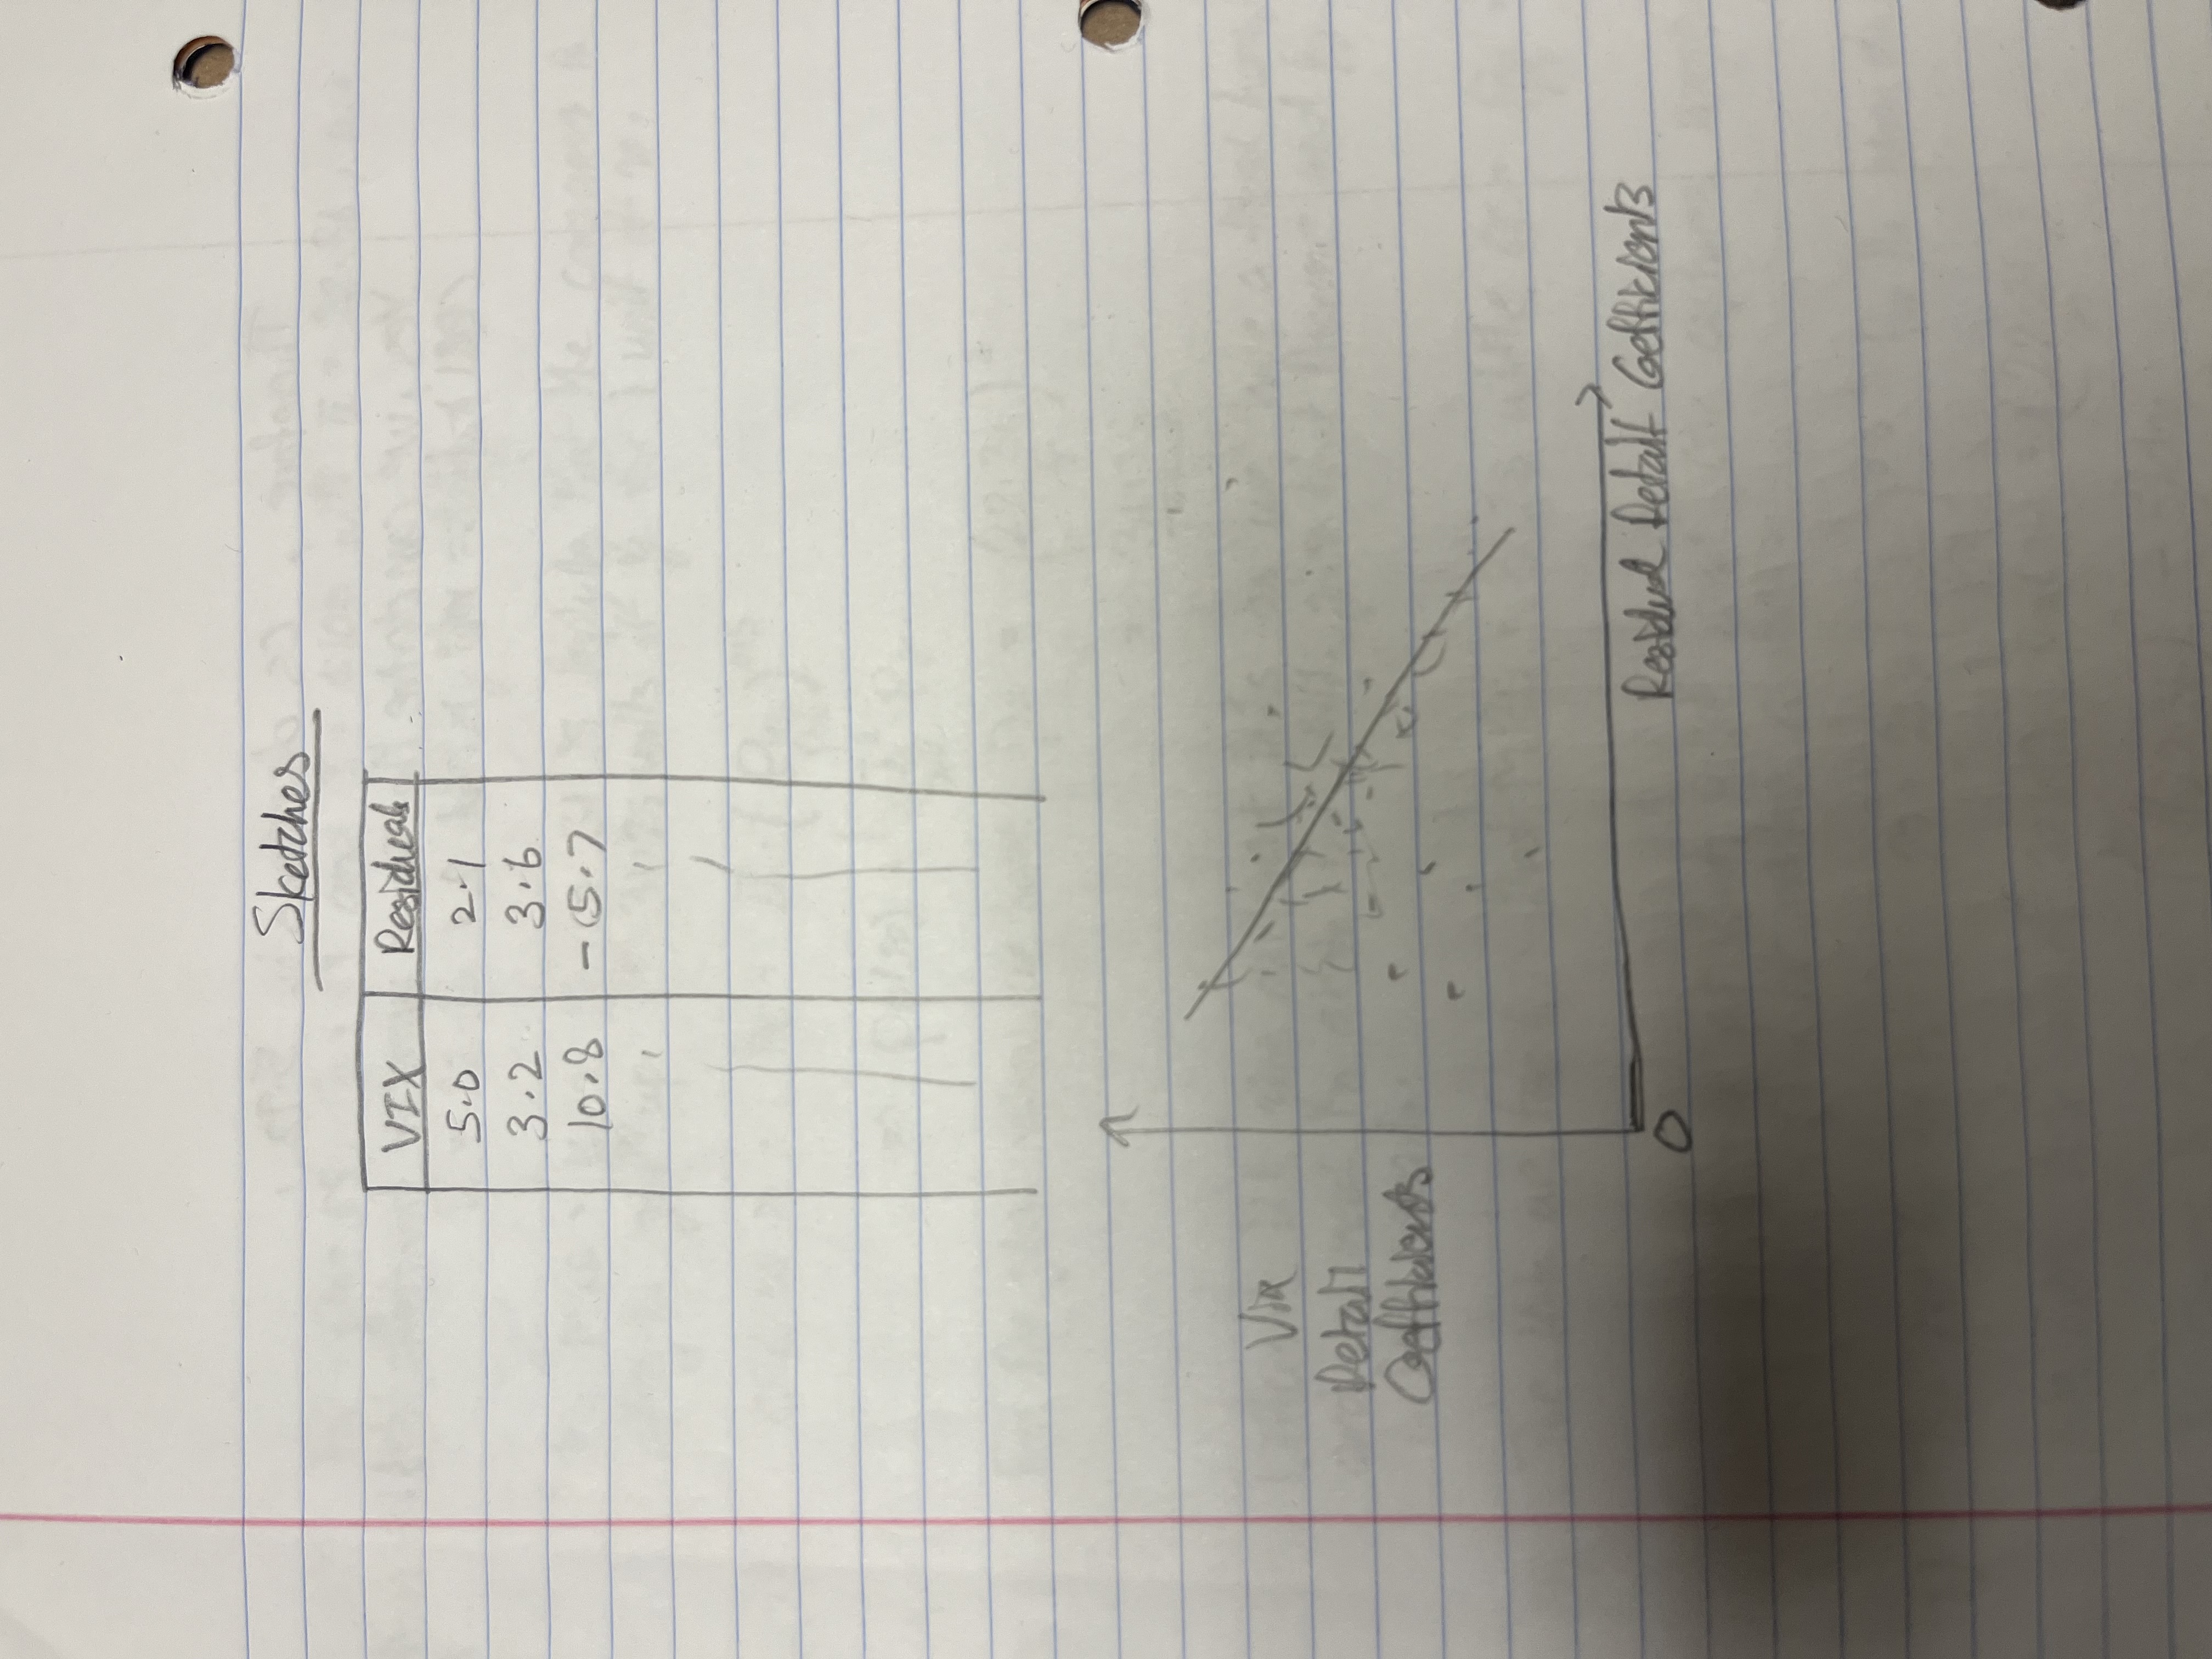 Sketches
VIX Residuals
5.0 2.1
3.2 3.6
10.8 -15.7
Vix
Detail
Coefficients
0
Residual Detail Coefficients